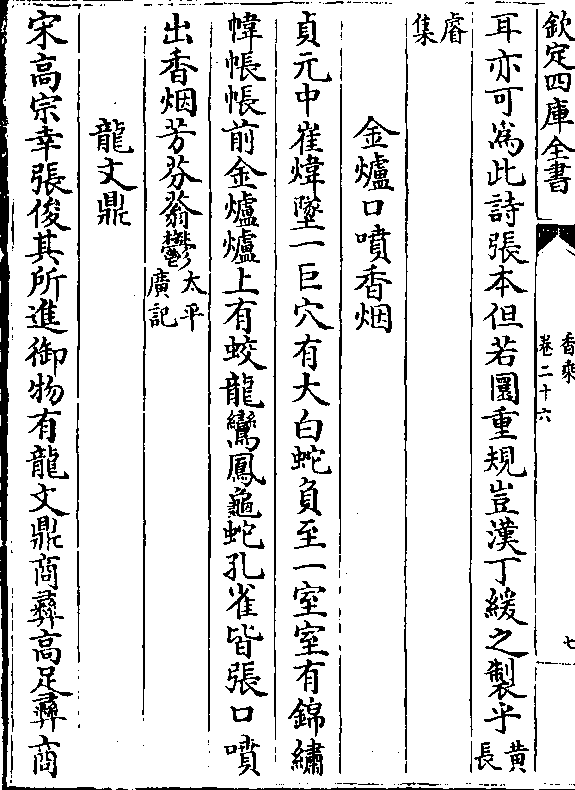 欽定四庫全書
香乘
卷二十六
七
耳亦可為此詩張本但若圜重規豈漢丁緩之製乎黃長
睿集
金爐口噴香烟
貞元中崔煒墜一巨穴有大白蛇負至一室室有錦繡
幃帳帳前金爐爐上有蛟龍鸞鳳龜蛇孔雀皆張口噴
出香烟芳芬蓊鬱太平廣記
龍文鼎
宋高宗幸張俊其所進御物有龍文鼎商彞高足彞商